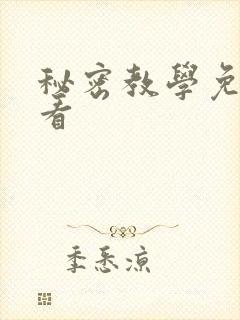 秘密教學免
看
季悉凉